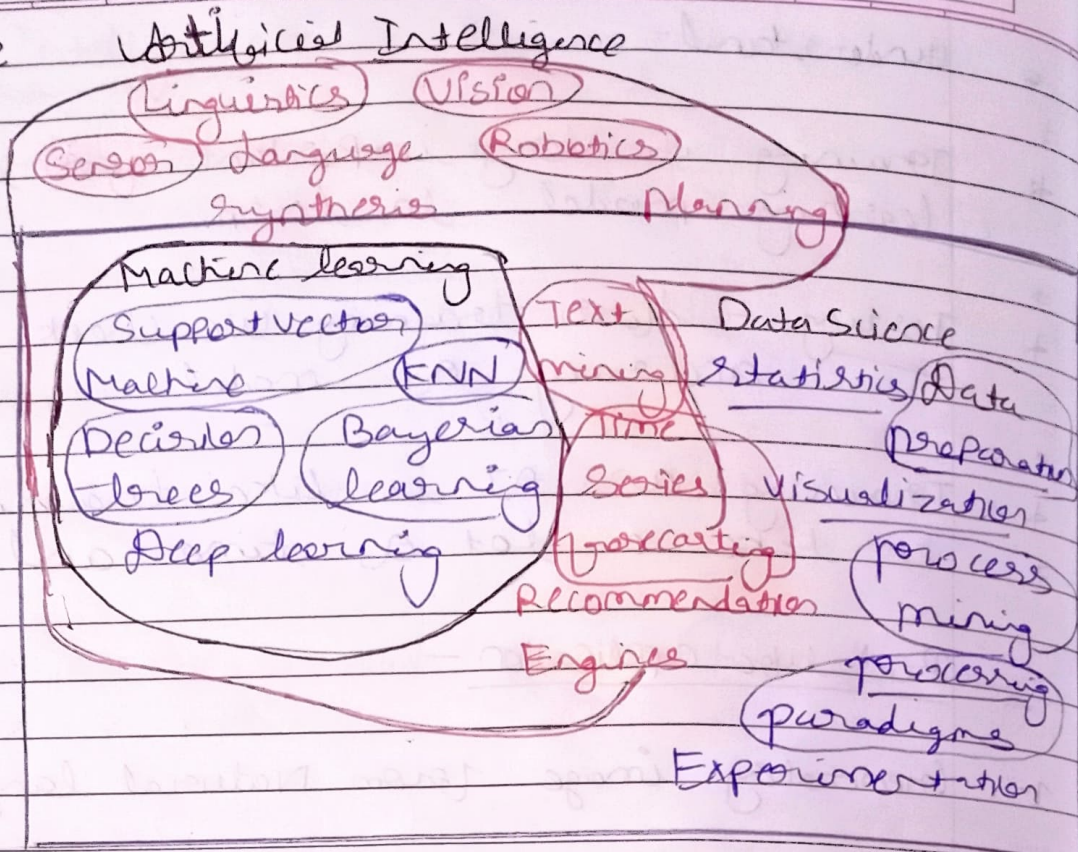 Artificial Intelligence
Linguistics Vision
Sensor Language Robotics
synthesis Planning
Machine learning
Support Vector
Machine KNN
Decision
trees
Bayesian
learning
Deep learning
Text
mining
Time
Series
forecasting
Recommendation
Engines
Data Science
Statistics
Data
preparation
Visualization
process
mining
processing
paradigms
Experimentation